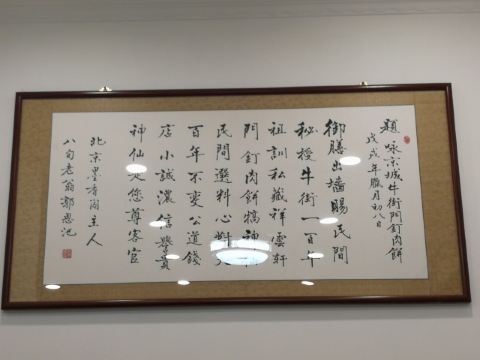 題咏京城牛街門釘肉餅
戊戌年臘月初八日
御膳出墻賜民間
秘授牛街一百年
祖訓私藏祥雲軒
門釘肉餅犒神
民間選料心對
百年不變公道錢
店小誠濃信譽貴
神仙比您尊客官
北京墨香閣主人
八旬老翁郭恩池